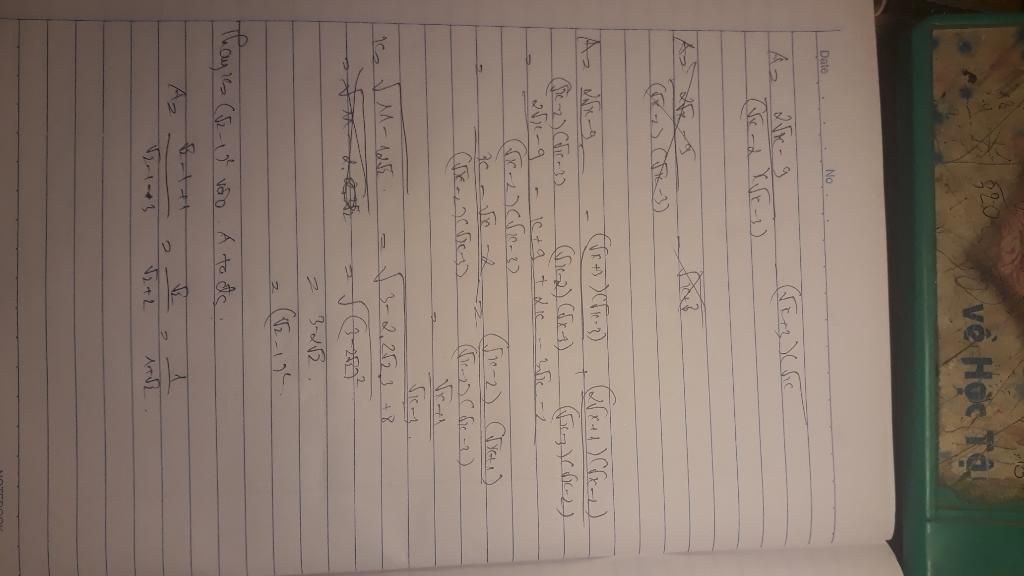 Date No.
A = 2√x-9 / (√x-2)(√x-3) (√x-3)√x
A = 2√x-9 / (√x-2)(√x-3) - √x+3
A = 2√x-9 / (√x-2)(√x-3) - (√x+3)(√x-3) / (√x-2)(√x-3) + (2√x+1)(√x-2) / (√x-3)(√x-2)
= 2√x-9 - x+9 + 2x-3√x-2 / (√x-2)(√x-3)
= x-√x-2 / (√x-2)(√x-3) = (√x-2)(√x+1) / (√x-2)(√x-3)
= √x+1 / √x-3.
x = √11-12√2 = √3-2.2√2.3+8
= √11-2 = √(3-2√2)²
= 3-2√2.
= (√2-1)²
Thay x = (√2-1)² vào A ta đc.
A = √2-1+1 / √2-1-3 = √2 / √2+2 = 1 / 1+√2.
Về Học Tại